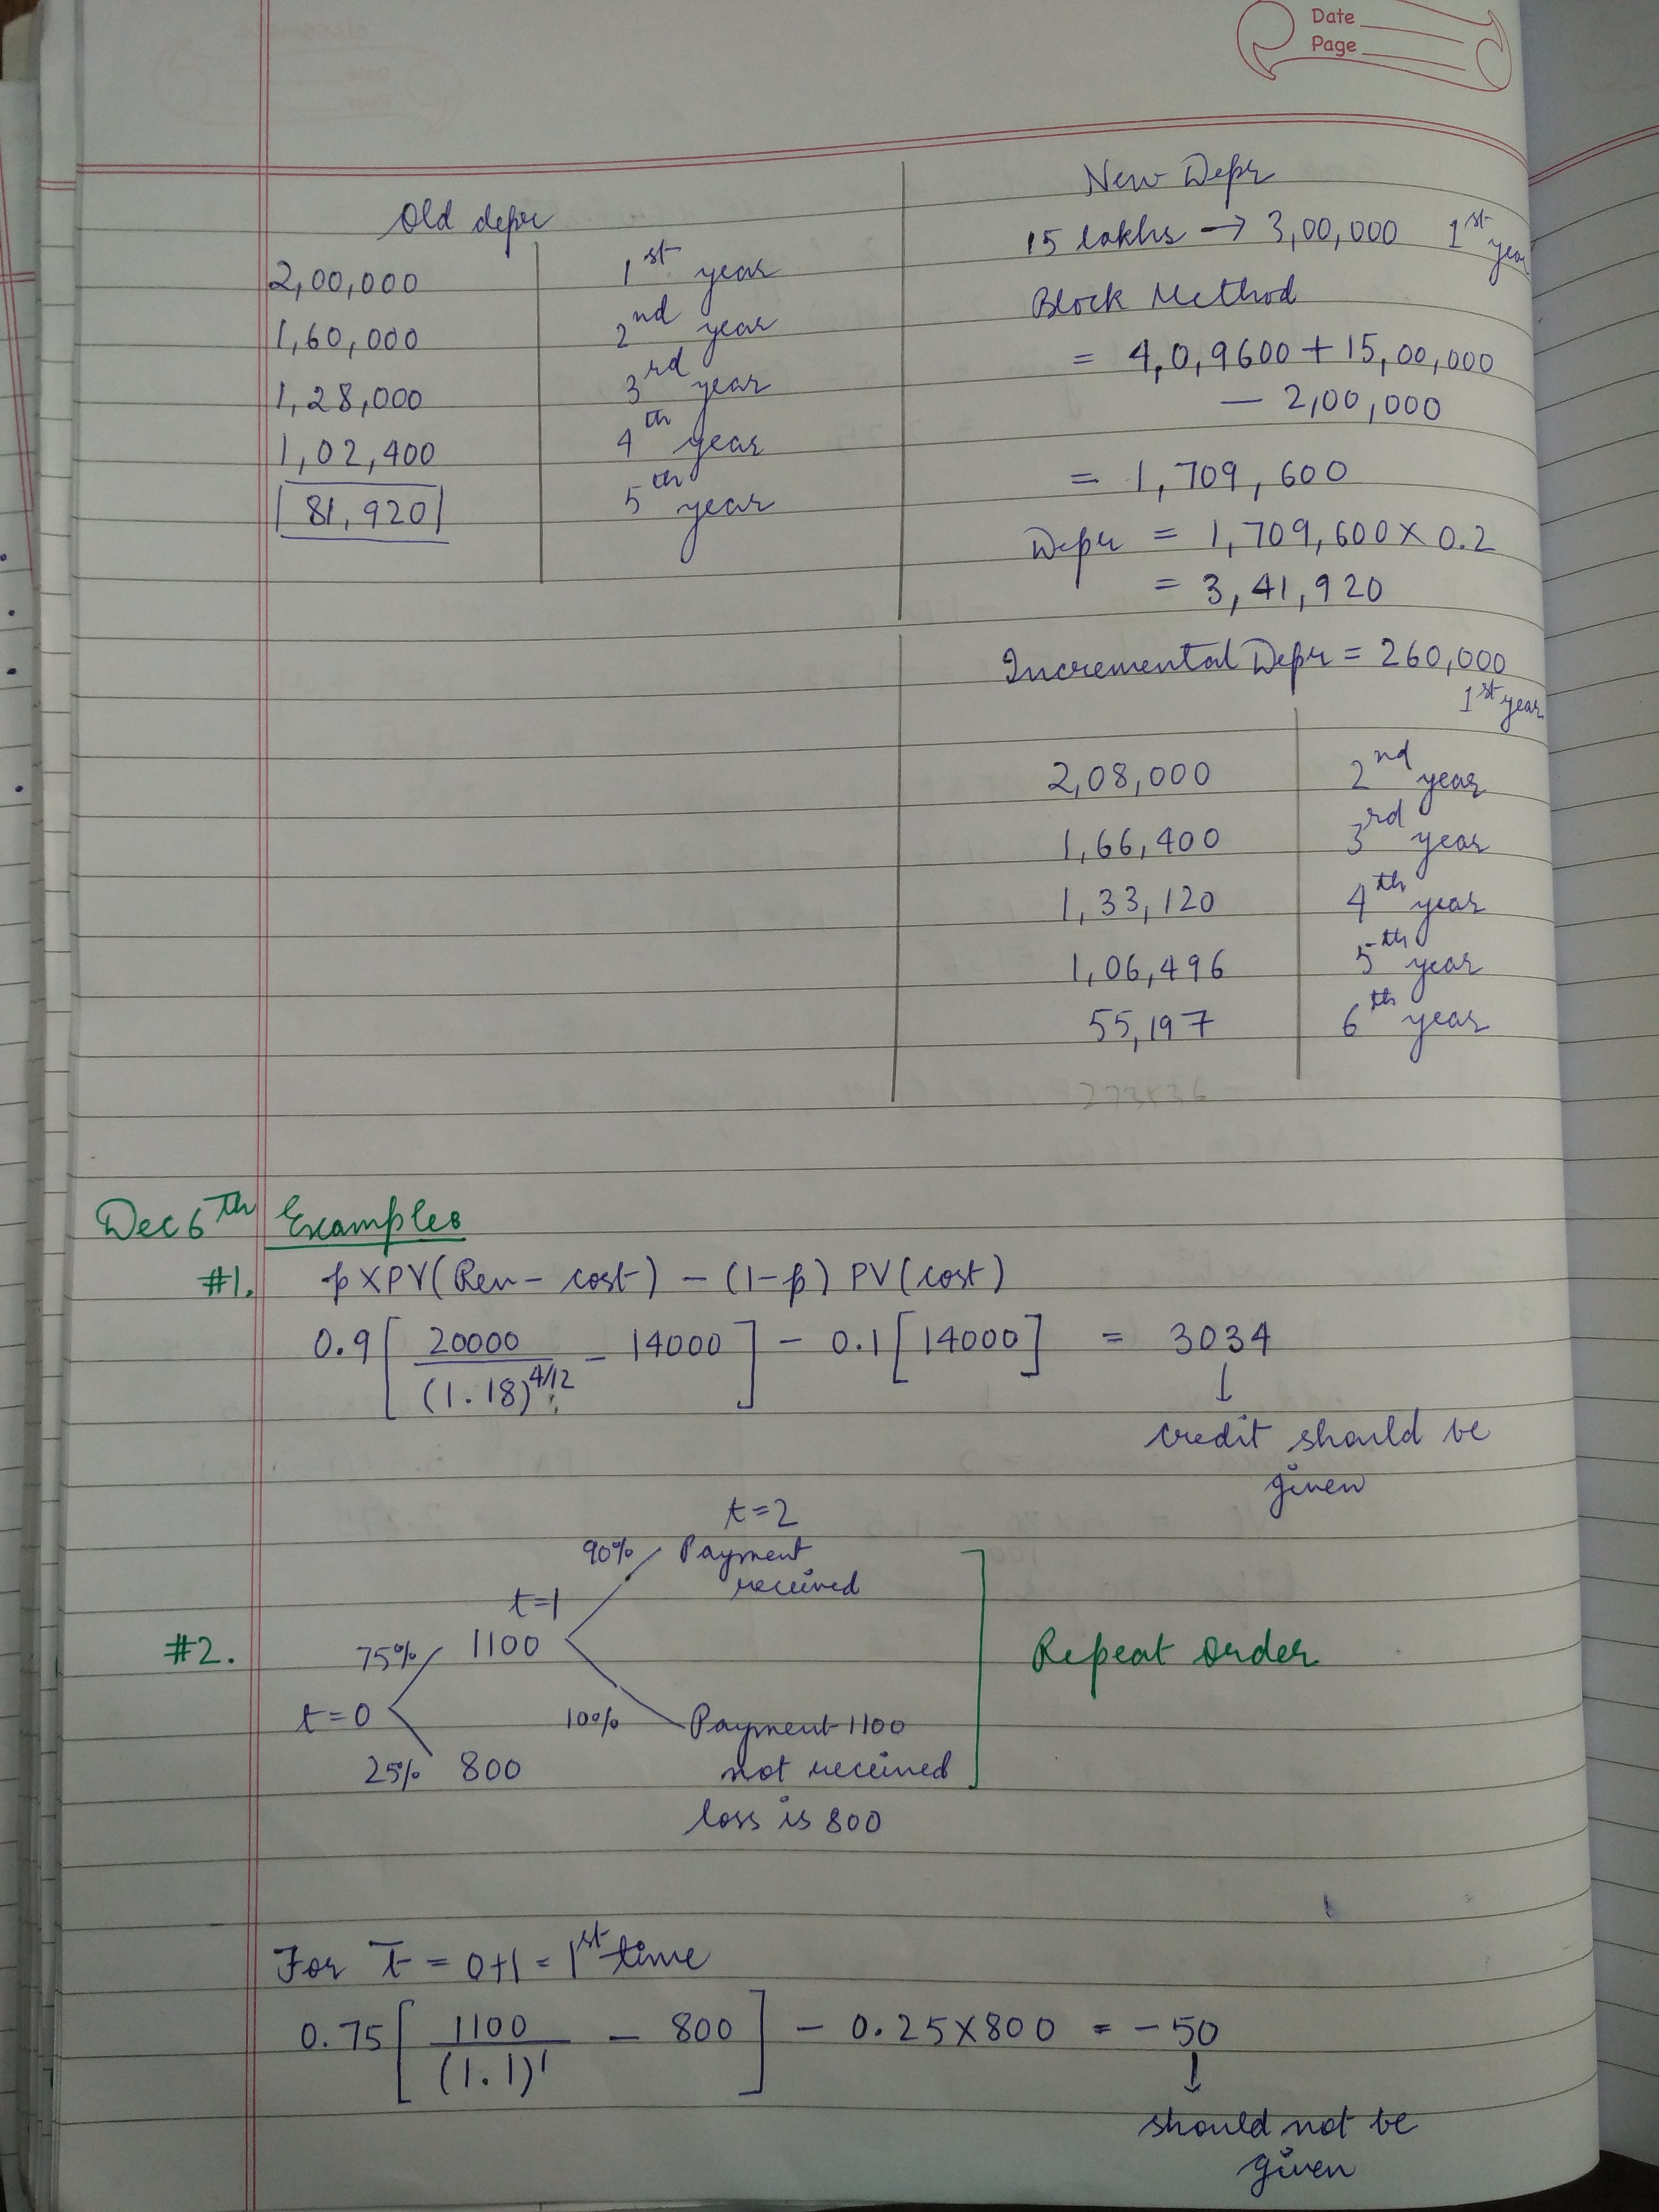 Date
Page
Old depr
2,00,000 1st year
1,60,000 2nd year
1,28,000 3rd year
1,02,400 4th year
81,920 5th year
New Depr
15 lakhs → 3,00,000 1st year
Block Method
= 4,0,9600 + 15,00,000
— 2,00,000
= 1,709,600
Depr = 1,709,600 × 0.2
= 3,41,920
Incremental Depr = 260,000
1st year
2,08,000 2nd year
1,66,400 3rd year
1,33,120 4th year
1,06,496 5th year
55,197 6th year
Dec 6th Examples
#1. p X PV (Rev - cost) - (1-p) PV (cost)
0.9 [ 20000 / (1.18)^4/12 - 14000 ] - 0.1 [ 14000 ] = 3034
↓
credit should be
given
t=2
90% Payment
received
t=1
#2. 75% 1100 Repeat order
t=0
10% Payment 1100
25% 800 not received
loss is 800
For T = 0+1 = 1st time
0.75 [ 1100 / (1.1)^1 - 800 ] - 0.25×800 = -50
↓
should not be
given